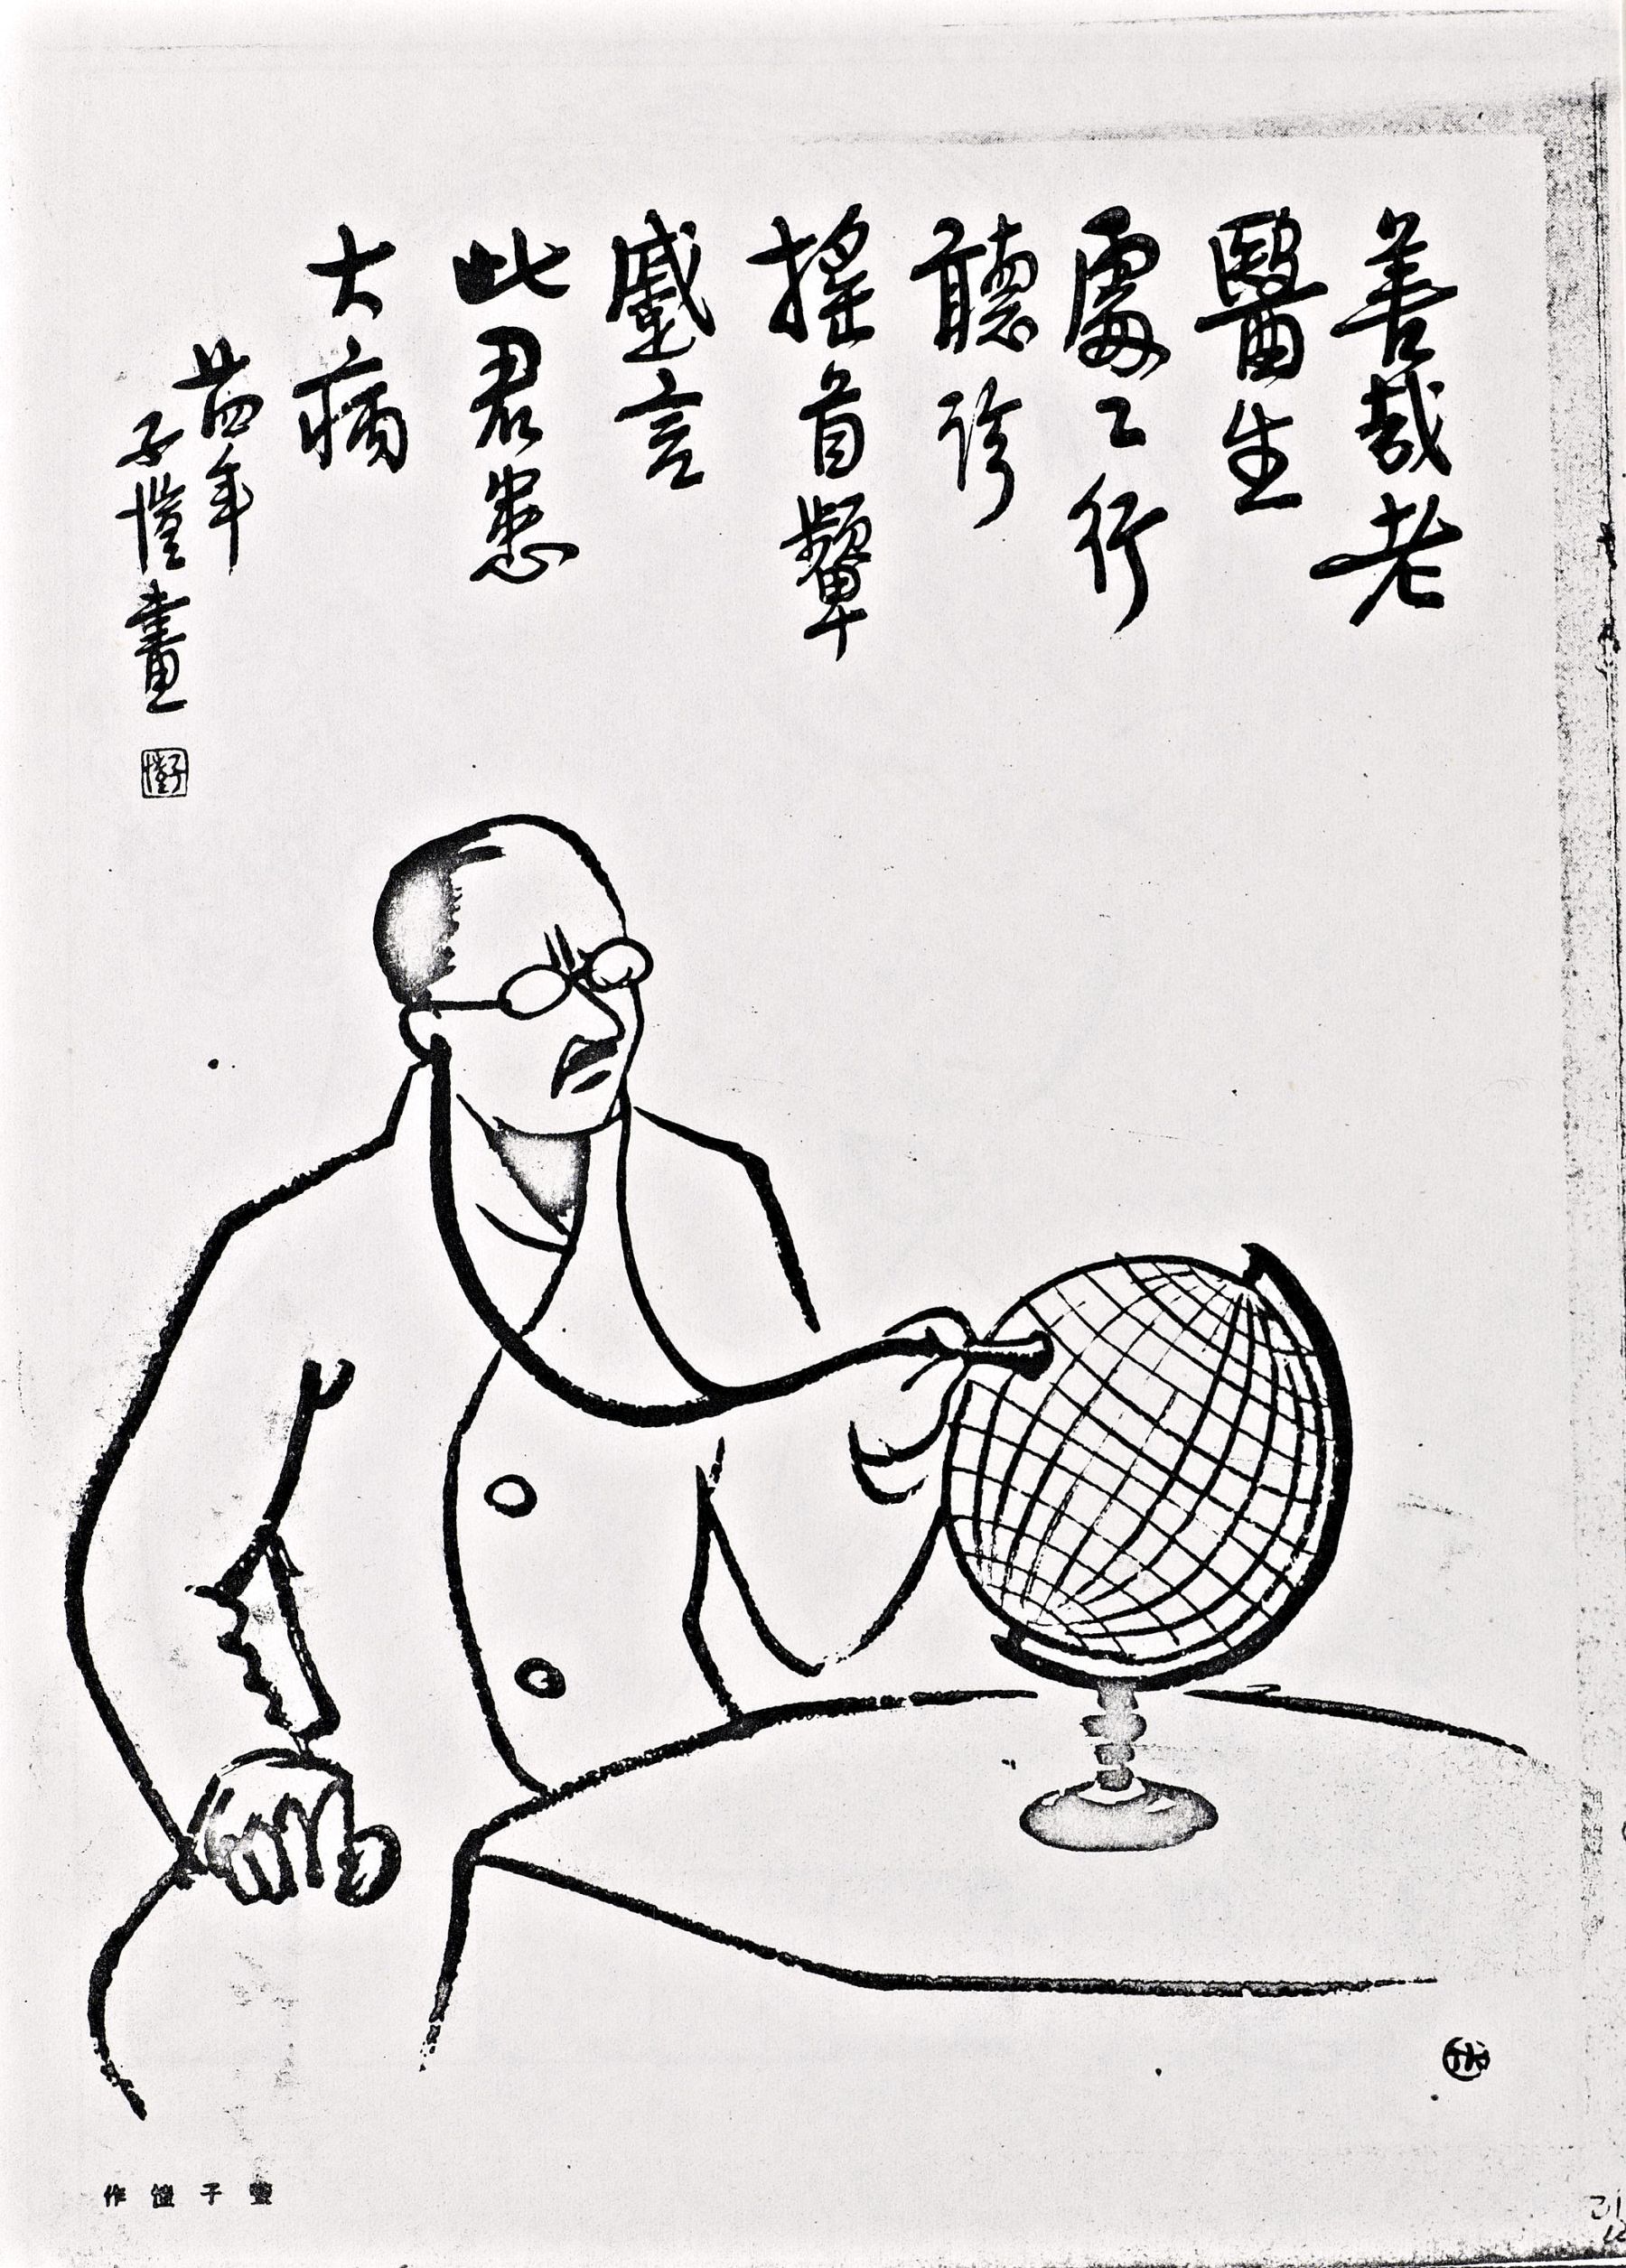 善哉老
醫生
處〻行
聽診
搖首顰
蹙言
此君患
大病
廿四年
子愷畫
子愷
TK
豐子愷作